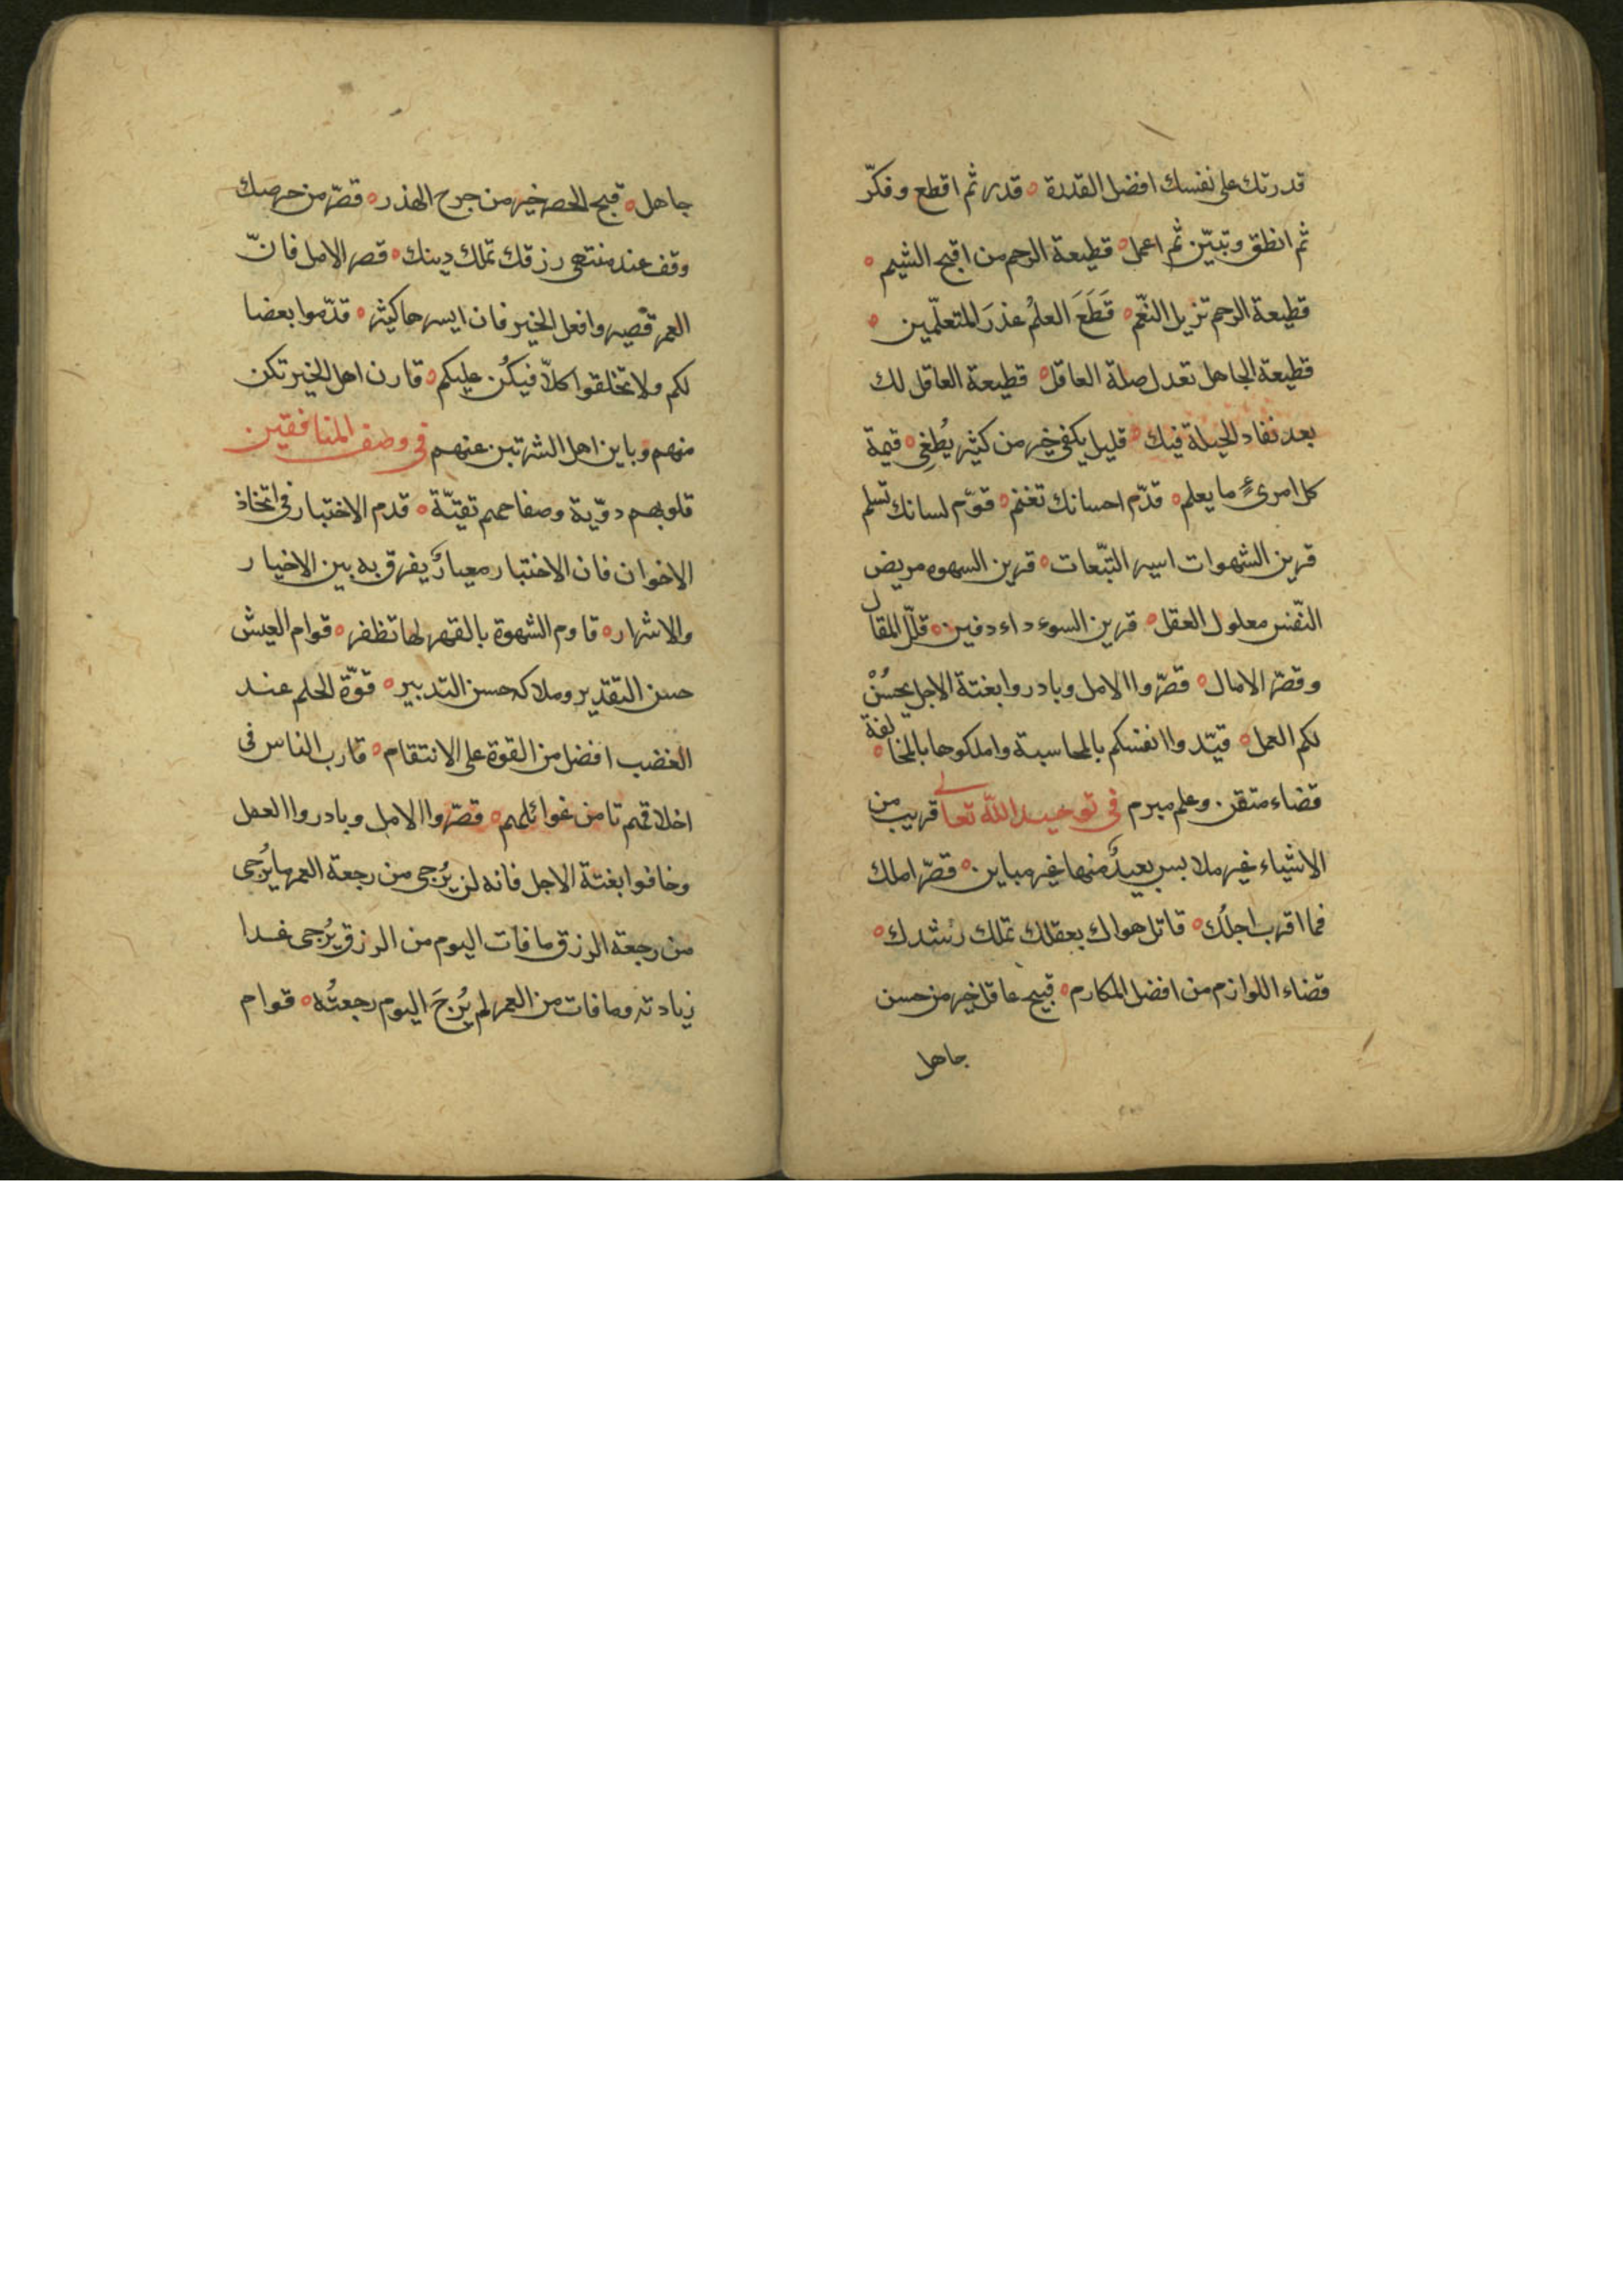 قدرتك على نفسك افضل القدرة ه قدر ثم اقطع وفكّر
ثم انطق وتبيّن ثم اعمل ه قطيعة الرحم من اقبح الشيم ه
قطيعة الرحم تزيل النّعم ه قَطَعَ العلمُ عذرَ المتعلّمين ه
قطيعة الجاهل تعدل صلة العاقل ه قطيعة العاقل لك
بعد نفاد الحيلة فيك ه قليل يكفى خير من كثير يُطغِى ه قيمة
كل امرئٍ ما يعلم ه قدّم احسانك تغنم ه قوّم لسانك تسلم
قرين الشهوات اسير التّبعات ه قرين السهوه مريض
النّفس معلول العقل ه قرين السوء داء دفين ه قلّل المقال
وقصّر الامال ه قصّروا الامل وبادروا بغتة الاجل يحسُنْ
لكم العمل ه قيّدوا انفسكم بالمحاسبة واملكوها بالمخالفة ه
قضاء متقن وعلم مبرم في توحيد الله تعالى قريب من
الاشياء غير ملابس بعيدٌ منها غير مباين ه قصّر املك
فما اقرب اجلُك ه قاتل هواك بعقلك تملك رشدك ه
قضاء اللوازم من افضل المكارم ه قبيح عاقل خير من حسن
جاهل
جاهل ه قبح الحصر خير من جرح الهذر ه قصّر من حرصك
وقف عند منتهى رزقك تملك دينك ه قصر الامل فانّ
العمر قصير وافعل الخير فان ايسرها كثير ه قدّموا بعضا
لكم ولا تخلفوا كلّا فيكُن عليكم ه قارن اهل الخير تكن
منهم وباين اهل الشر تبن عنهم في وصف المنافقين
قلوبهم دوّية وصفاحهم تقيّة ه قدم الاختبار فى اتخاذ
الاخوان فان الاختبار معيارٌ يفرق به بين الاخيار
والاشرار ه قاوم الشهوة بالقهر لها تظفر ه قوام العيش
حسن التقدير وملاكه حسن التدبير ه قوّة الحلم عند
الغضب افضل من القوة على الانتقام ه قارب الناس فى
اخلاقهم تامن غوائلهم ه قصّروا الامل وبادروا العمل
وخافوا بغتة الاجل فانه لن يُرجى من رجعة العمر ما يُرجى
من رجعة الرزق ما فات اليوم من الرزق يُرجى غدا
زيادته وما فات من العمر لم يُرجَ اليوم رجعتُه ه قوام